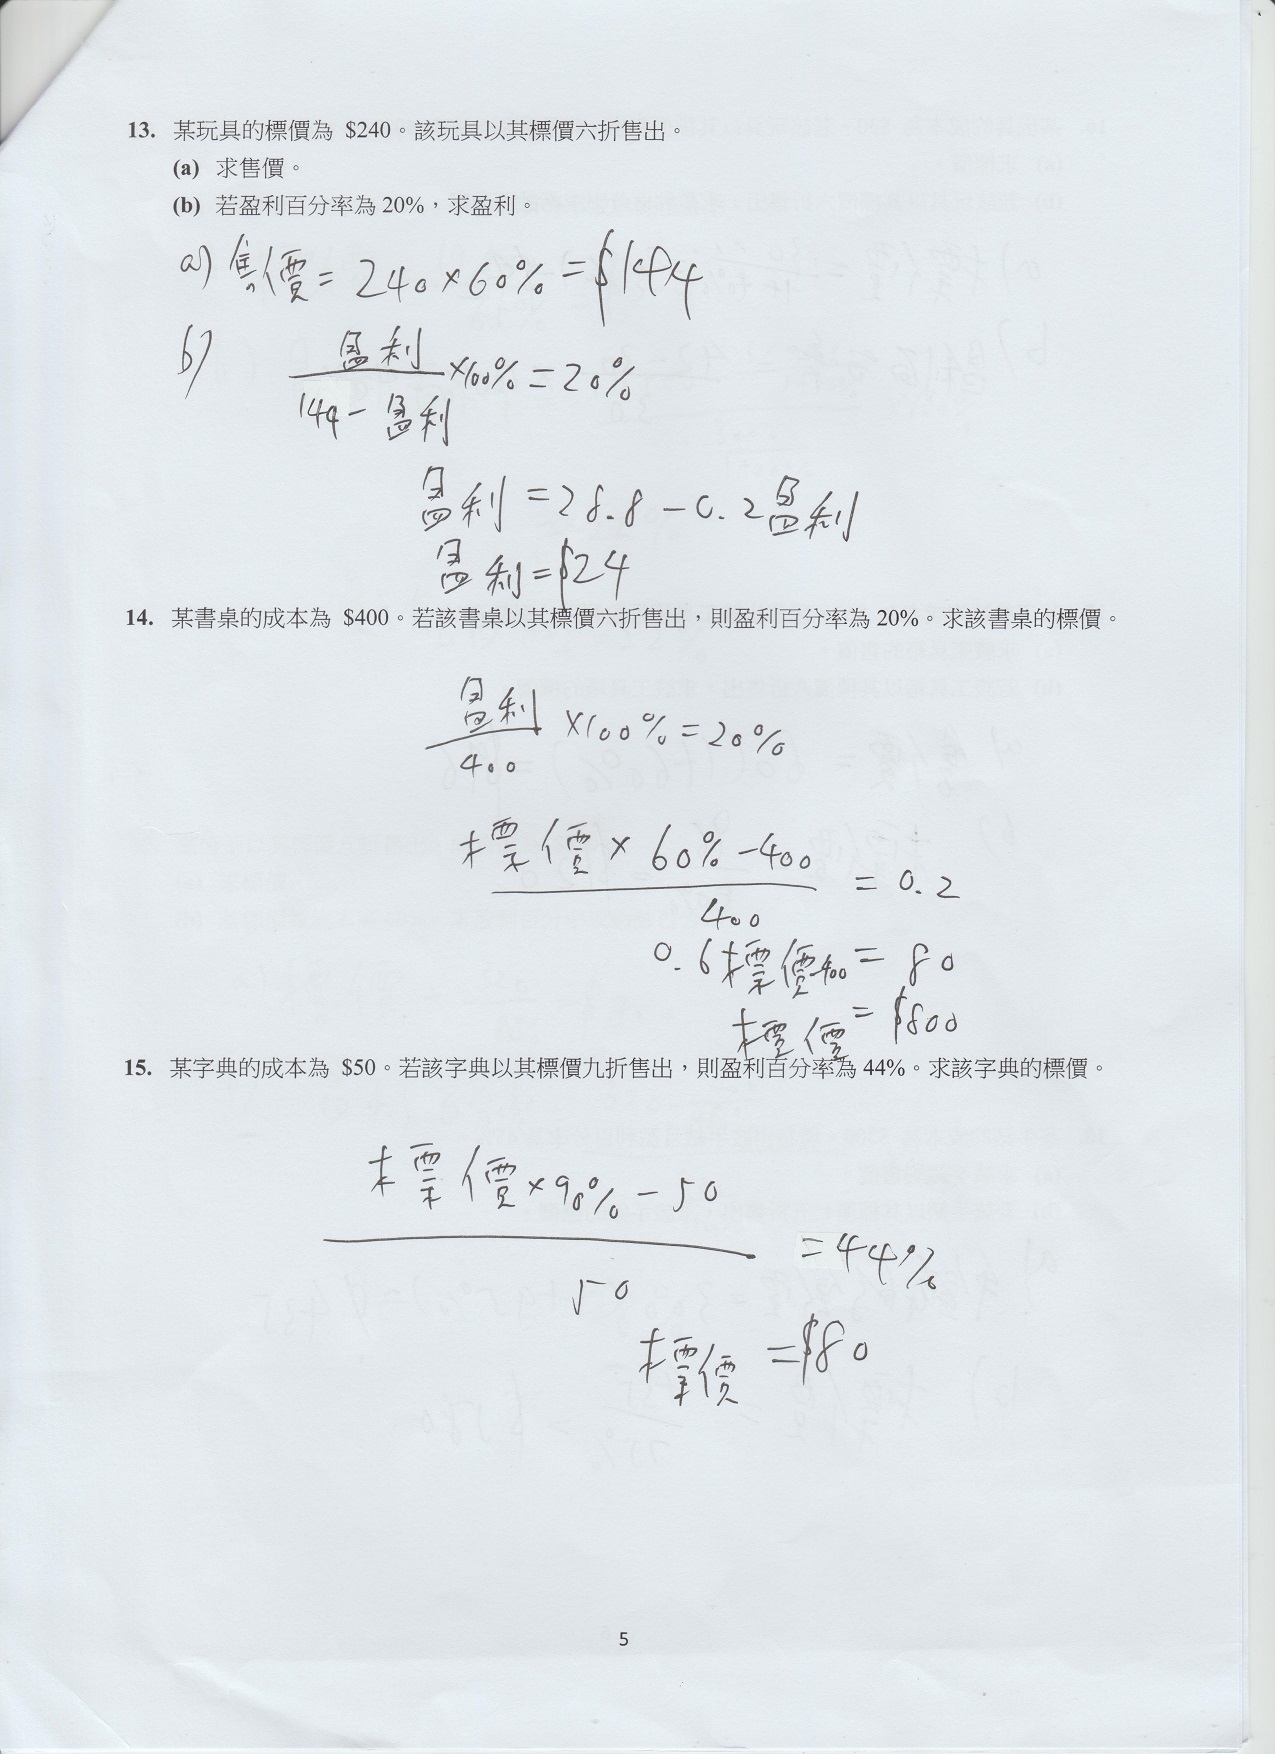 13. 某玩具的標價為 $240。該玩具以其標價六折售出。
(a) 求售價。
(b) 若盈利百分率為 20%，求盈利。
a) 售價 = 240 × 60% = $144
b) 盈利 / 144 - 盈利 × 100% = 20%
盈利 = 28.8 - 0.2 盈利
盈利 = $24
14. 某書桌的成本為 $400。若該書桌以其標價六折售出，則盈利百分率為 20%。求該書桌的標價。
盈利 / 400 × 100% = 20%
標價 × 60% - 400 / 400 = 0.2
0.6 標價 - 400 = 80
標價 = $800
15. 某字典的成本為 $50。若該字典以其標價九折售出，則盈利百分率為 44%。求該字典的標價。
標價 × 90% - 50 / 50 = 44%
標價 = $80
5